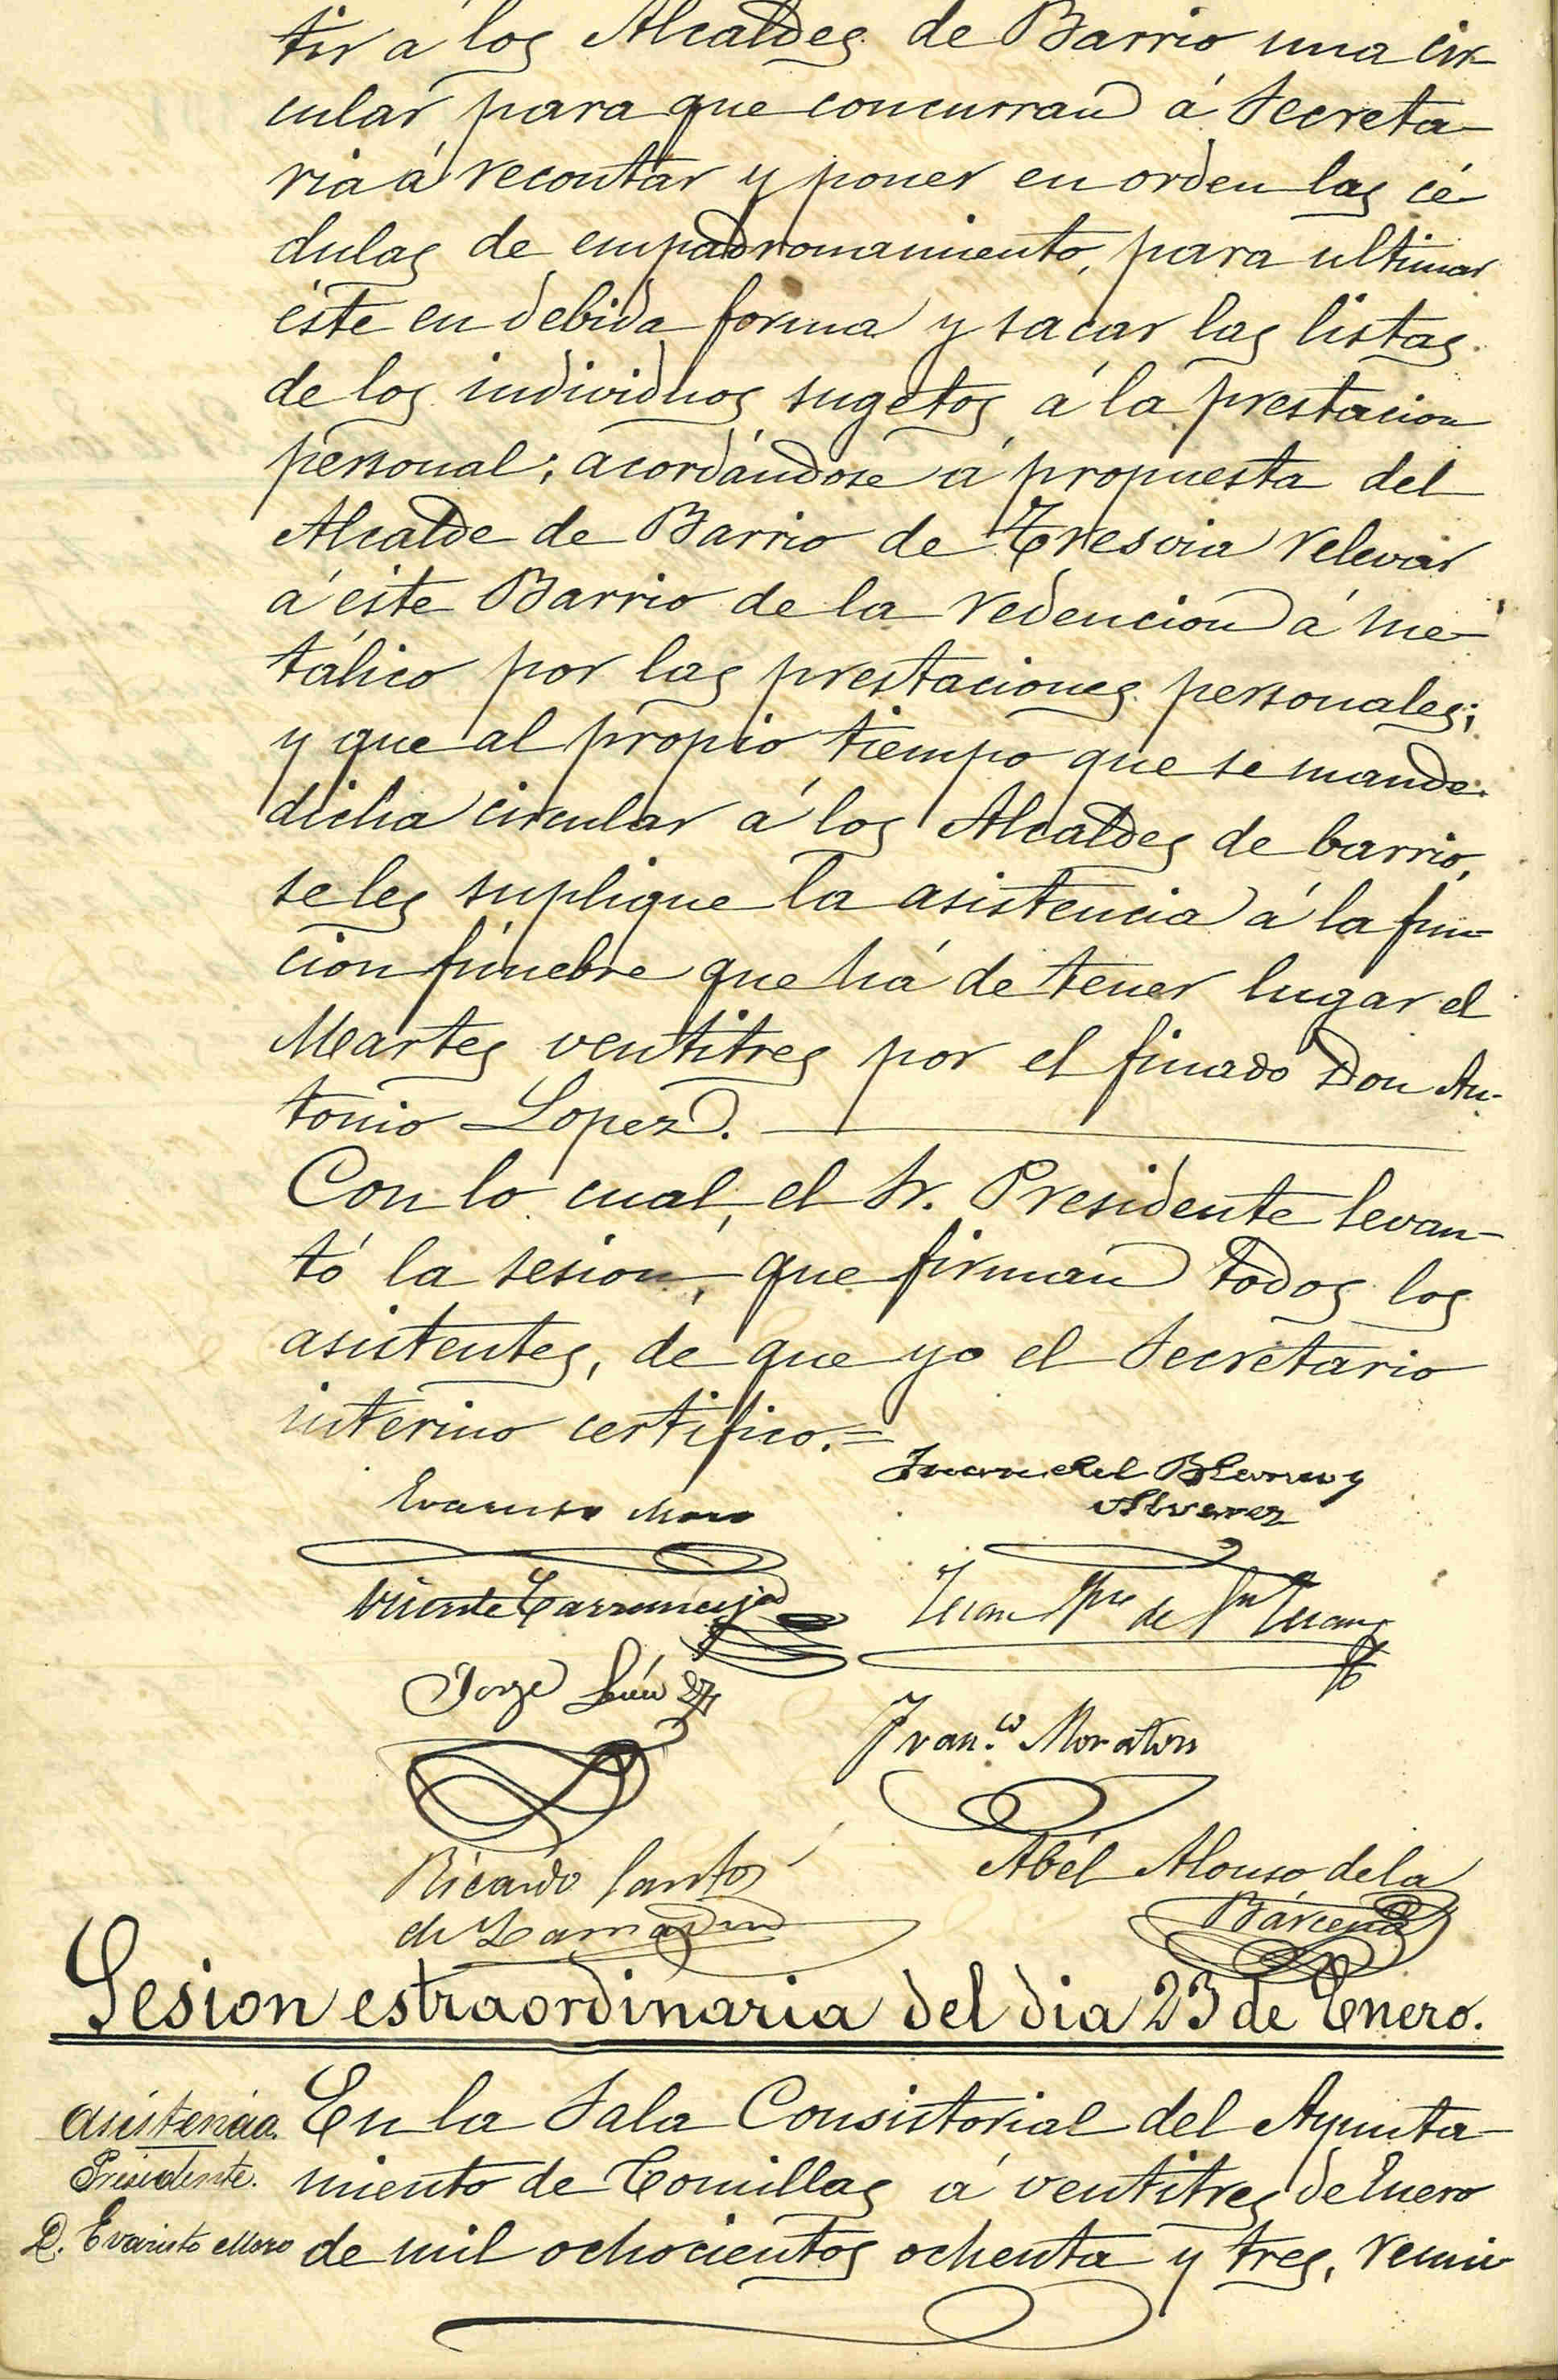 tir a los Alcaldes de Barrio una cir-
cular para que concurran á Secreta-
ria á recontar y poner en orden las cé-
dulas de empadronamiento, para ultimar
éste en debida forma y sacar las listas
de los individuos sugetos á la prestacion
personal; acordándose á propuesta del
Alcalde de Barrio de Tresvia relevar
á éste Barrio de la redencion á me-
tálico por las prestaciones personales;
y que al propio tiempo que se mande
dicha circular á los Alcaldes de barrio,
se les suplique la asistencia á la fun-
cion fúnebre que há de tener lugar el
Martes ventitres por el finado Don An-
tonio Lopez.
Con lo cual, el Sr. Presidente levan-
tó la sesion, que firman todos los
asistentes, de que yo el Secretario
interino certifico.=
Juan del Blanco y
Alvarez
Evaristo Moro
Vicente Carranceja
Juan de Juan
Jorge
Fran.co Moraton
Ricardo Santos
de Lamadrid
Abél Alonso de la
Bárcena
Sesion estraordinaria del dia 23 de Enero.
asistencia.
Presidente.
D. Evaristo Moro
En la Sala Consistorial del Ayunta-
miento de Comillas á ventitres de Enero
de mil ochocientos ochenta y tres, reuni-